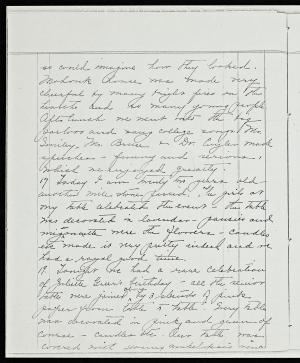 so could imagine how they looked.
Mohonk House was made very
cheerful by many bright fires on the
hearths and so many young people.
After lunch we went into the big
parlors and sang college songs. Mr.
Smiley, Mr. Bruce Dr. Cuyler made
speeches - funny and serious,
which we enjoyed greatly.
17 Today I am twenty years old -
another mile stone passed. The girls at
my table celebrated the event - the table
was decorated in lavender - pansies and
mignonette were the flowers - candles
made is very pretty indeed and we
had a royal good time.
19 Tonight we had a rare celebration
of birthday - all the senior
tables were joined by 3 strands of pink
paper from table to table. Every table
was decorated in pink, and
course - candles etc. Our table was
covered with